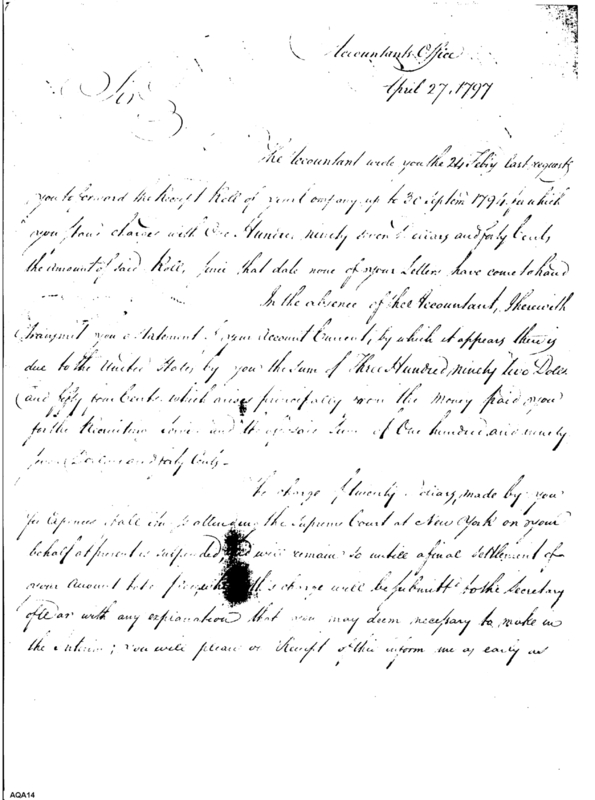 Accountants Office
April 27, 1797
Sir
The Accountant wrote you the 24 Feby last requests
you to forward the Receipt Roll of your Company up to 30 Septem 1794, in which
you stand charged with One Hundred ninety seven Dollars and forty Cents
the amount of said Roll, since that date none of your Letters have come to hand
In the absence of the Accountant, I herewith
transmit you a statement of your Account Current, by which it appears there is
due to the United States by you the Sum of Three Hundred, ninety two Dolls.
and fifty four Cents. which arises principally from the Money paid you
for the Recruiting Service and the aforesaid Sum of One hundred and ninety
seven Dollars and forty Cents.
The charge of twenty Dollars, made by you
for Expences attending the Supreme Court at New York on your
behalf at present is suspended, will remain so untill a final settlement of
your Account takes place charge will be submitted to the Secretary
of War with any explanation that you may deem necessary to make in
the interim; You will please on Receipt of this inform me as early as
AQA14